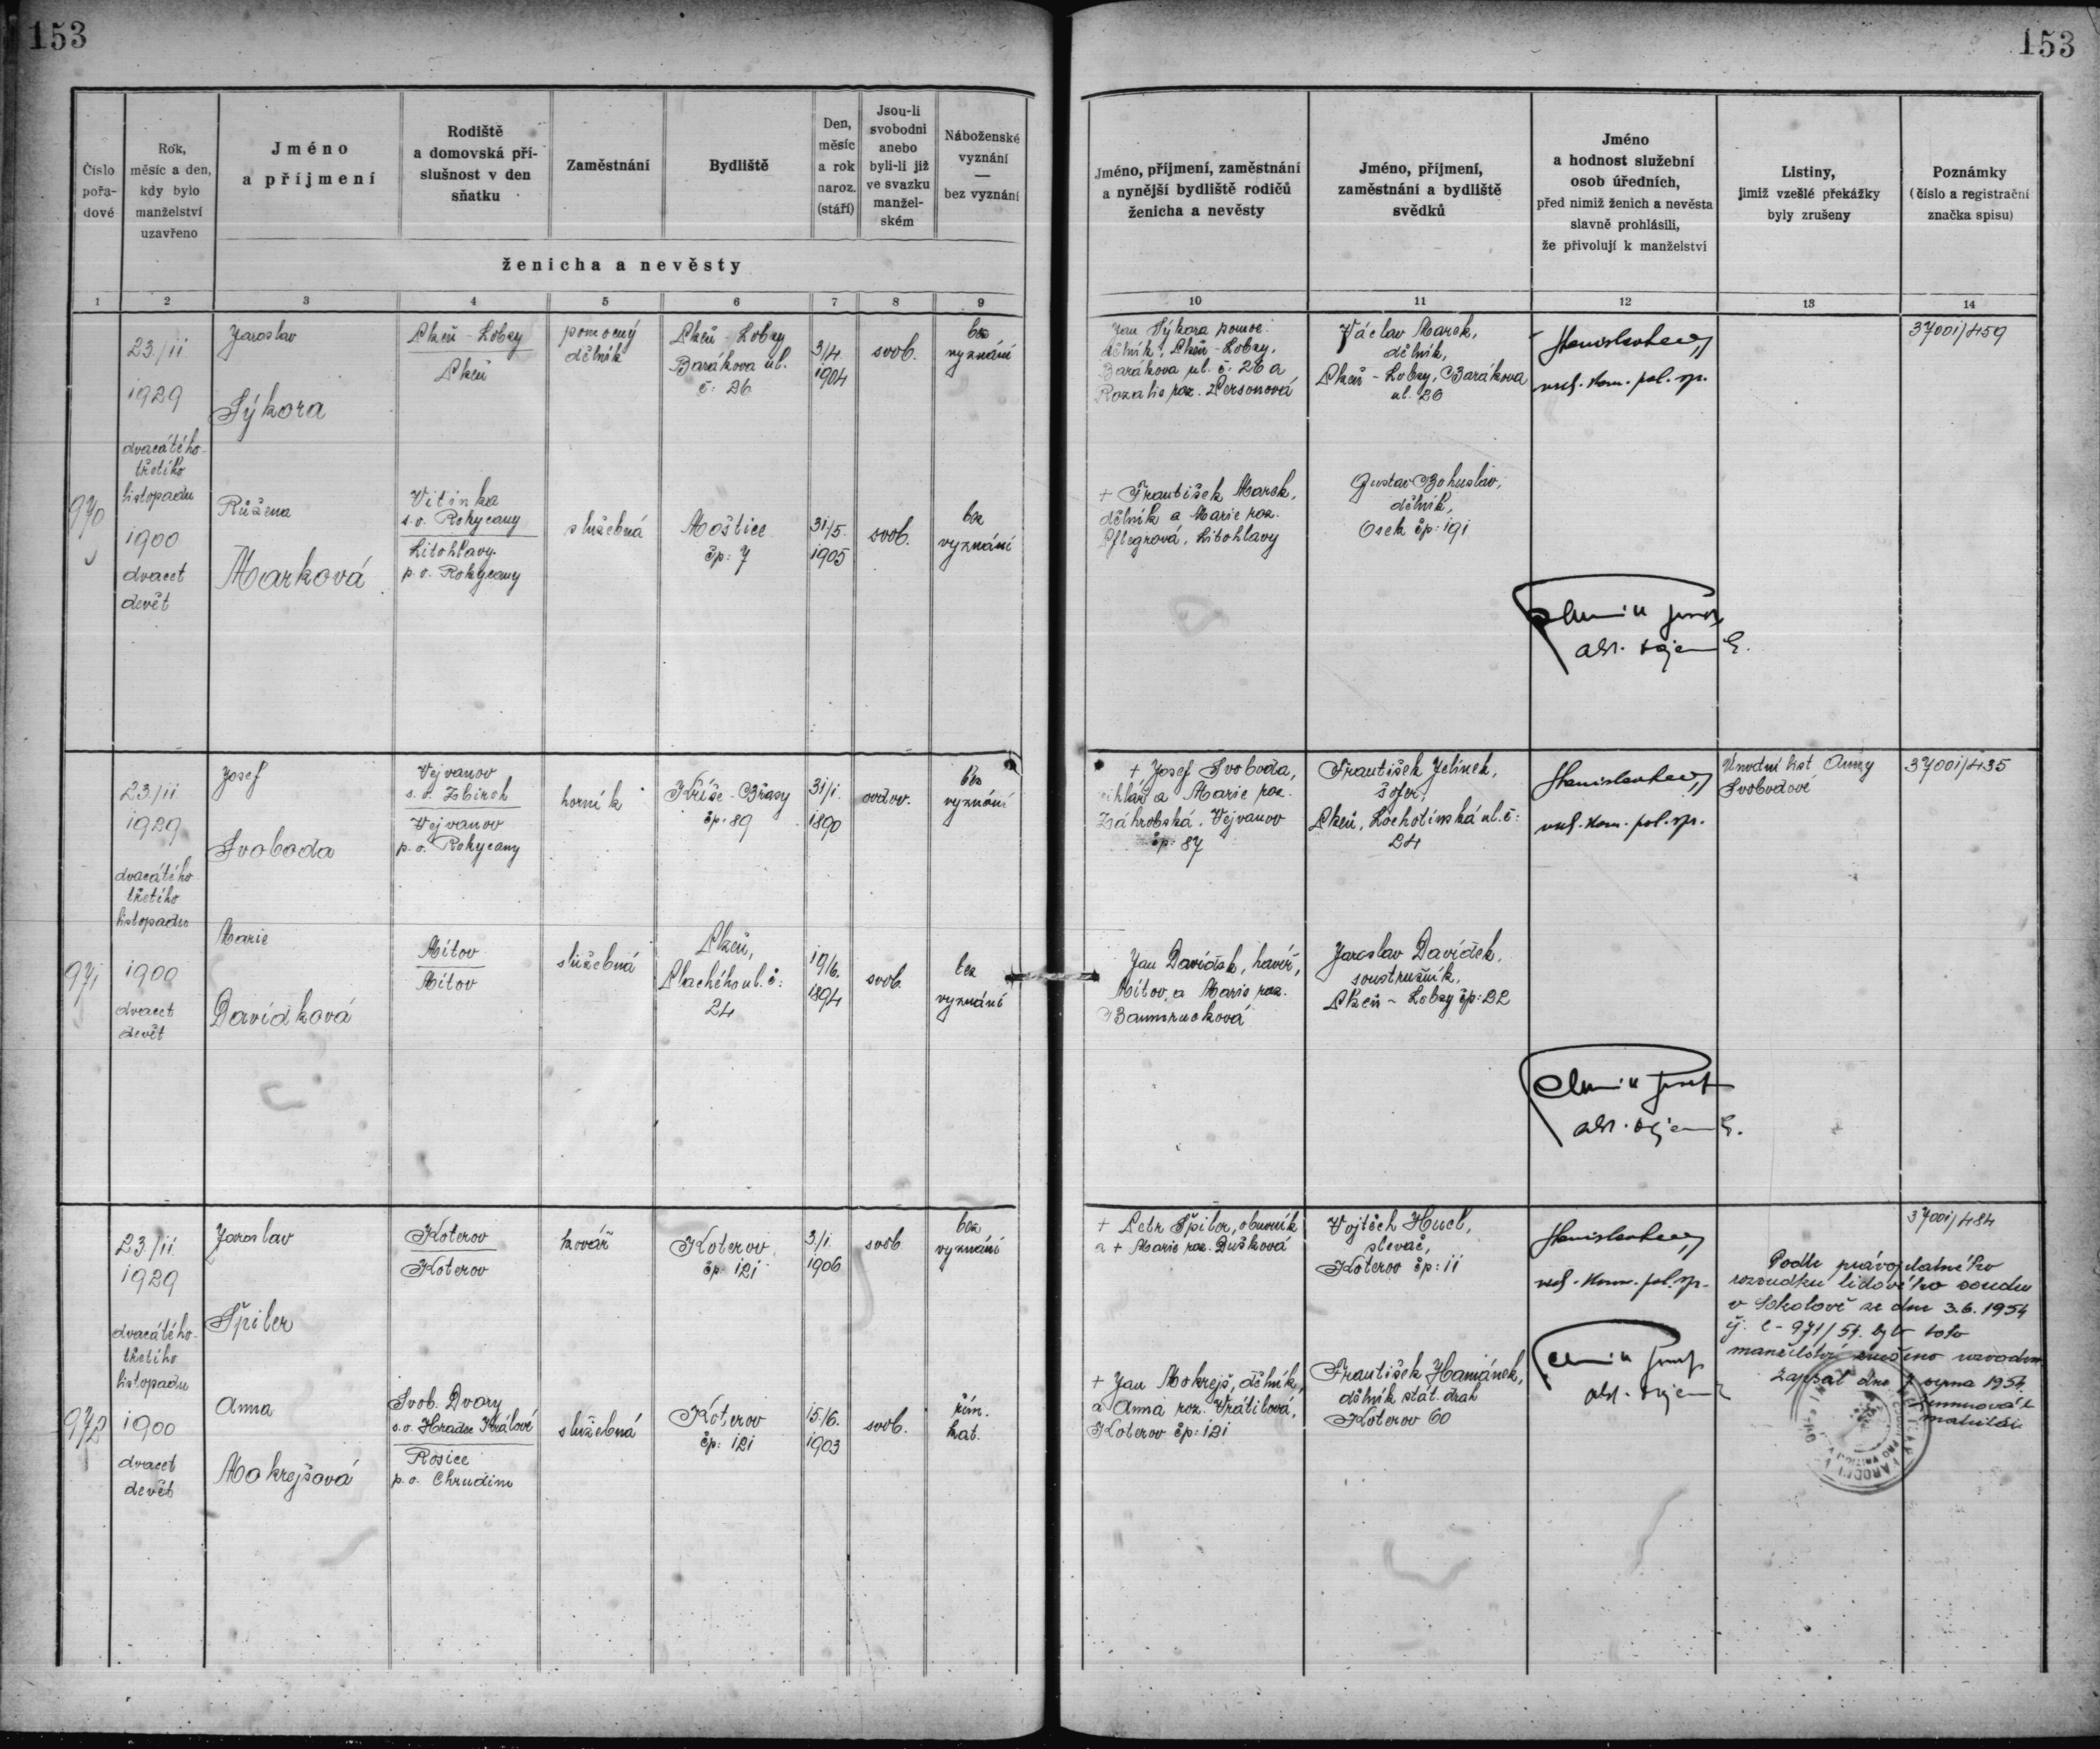 153
153
Číslo
pořa-
dové
Rok,
měsíc a den,
kdy bylo
manželství
uzavřeno
Jméno
a příjmení
Rodiště
a domovská pří-
slušnost v den
sňatku
Zaměstnání
Bydliště
Den,
měsíc
a rok
naroz.
(stáří)
Jsou-li
svobodni
anebo
byli-li již
ve svazku
manžel-
ském
Náboženské
vyznání
—
bez vyznání
ženicha a nevěsty
Jméno, příjmení, zaměstnání
a nynější bydliště rodičů
ženicha a nevěsty
Jméno, příjmení,
zaměstnání a bydliště
svědků
Jméno
a hodnost služební
osob úředních,
před nimiž ženich a nevěsta
slavně prohlásili,
že přivolují k manželství
Listiny,
jimiž vzešlé překážky
byly zrušeny
Poznámky
(číslo a registrační
značka spisu)
1 2 3 4 5 6 7 8 9 10 11 12 13 14
970
23./11
1929
dvacátého-
třetího
listopadu
1900
dvacet
devět
Jaroslav
Sýkora
Plzeň - Lobzy
Plzeň
pomocný
dělník
Plzeň - Lobzy
Barákova ul.
č: 26
3/4.
1904
svob.
bez
vyznání
Jan Sýkora pomoc.
dělník, Plzeň - Lobzy,
Barákova ul. č: 26 a
Rozalie roz. Personová
Václav Marek,
dělník,
Plzeň - Lobzy, Barákova
ul. 26
37001/459
Růžena
Marková
Vitinka
s.o. Rokycany
Litohlavy
p. o. Rokycany
služebná
Moštice
čp: 7
31/5.
1905
svob.
bez
vyznání
+ František Marek,
dělník a Marie roz.
Pflegrová, Litohlavy
Gustav Bohuslav,
dělník,
Osek čp: 191
971
23/11
1929
dvacátého
třetího
listopadu
1900
dvacet
devět
Josef
Svoboda
Vejvanov
s. o. Zbiroh
Vejvanov
p. o. Rokycany
horník
Kříše - Břasy
čp. 89
31/1.
1890
ovdov.
bez
vyznání
+ Josef Svoboda,
cihlář a Marie roz.
Záhrobská, Vejvanov
čp: 87
František Jelínek,
šofer,
Plzeň, Lochotínská ul. č:
24
Úmrtní list Anny
Svobodové
37001/435
Marie
Davídková
Mítov
Mítov
služebná
Plzeň,
Plachého ul. č:
24
19/6.
1894
svob.
bez
vyznání
Jan Davídek, havíř,
Mítov, a Marie roz.
Baumruková
Jaroslav Davídek,
soustružník,
Plzeň - Lobzy čp: 22
972
23./11.
1929
dvacátého-
třetího
listopadu
1900
dvacet
devět
Jaroslav
Špiler
Koterov
Koterov
kovář
Koterov
čp: 121
3./1.
1906
svob.
bez
vyznání
+ Petr Špiler, obuvník
a + Marie roz. Dušková
Vojtěch Hucl,
slevač,
Koterov čp: 11
37001/484
Podle právoplatného
rozsudku lidového soudu
v Sokolově ze dne 3.6.1954
čj: C - 971/54. bylo toto
manželství zrušeno rozvodem
Zapsal dne 7. srpna 1954.
matrikář
Anna
Mokrejšová
Svob. Dvory
s.o. Hradec Králové
Rosice
p. o. Chrudim
služebná
Koterov
čp: 121
15./6.
1903
svob.
řím.
kat.
+ Jan Mokrejš, dělník,
a Anna roz. Vrátilová,
Koterov čp: 121
František Hamánek,
dělník stát. drah
Koterov 60